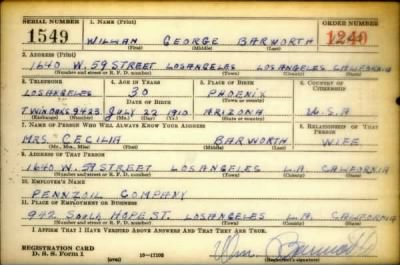 SERIAL NUMBER 1. NAME (Print) ORDER NUMBER
1549 WILLIAM GEORGE BARWORTH 1240
(First) (Middle) (Last)
2. ADDRESS (Print)
1640 W. 59 STREET LOS ANGELES LOS ANGELES CALIFORNIA
(Number and street or R. F. D. number) (Town) (County) (State)
3. TELEPHONE 4. AGE IN YEARS 5. PLACE OF BIRTH 6. COUNTRY OF CITIZENSHIP
LOS ANGELES 30 PHOENIX
DATE OF BIRTH
TWINOAKS 9423 JULY 22 1910 ARIZONA U.S.A
(Exchange) (Number) (Mo.) (Day) (Yr.) (State or country)
7. NAME OF PERSON WHO WILL ALWAYS KNOW YOUR ADDRESS 8. RELATIONSHIP OF THAT PERSON
MRS. CECILIA BARWORTH WIFE
(Mr., Mrs., Miss) (First) (Middle) (Last)
9. ADDRESS OF THAT PERSON
1640 W. 59 STREET LOS ANGELES L.A CALIFORNIA
(Number and street or R. F. D. number) (Town) (County) (State)
10. EMPLOYER'S NAME
PENNZOIL COMPANY
11. PLACE OF EMPLOYMENT OR BUSINESS
942 South HOPE ST. LOS ANGELES L.A. CALIFORNIA
(Number and street or R. F. D. number) (Town) (County) (State)
I AFFIRM THAT I HAVE VERIFIED ABOVE ANSWERS AND THAT THEY ARE TRUE.
REGISTRATION CARD
D. S. S. Form 1 (over) 16—17105 (Registrant's signature)